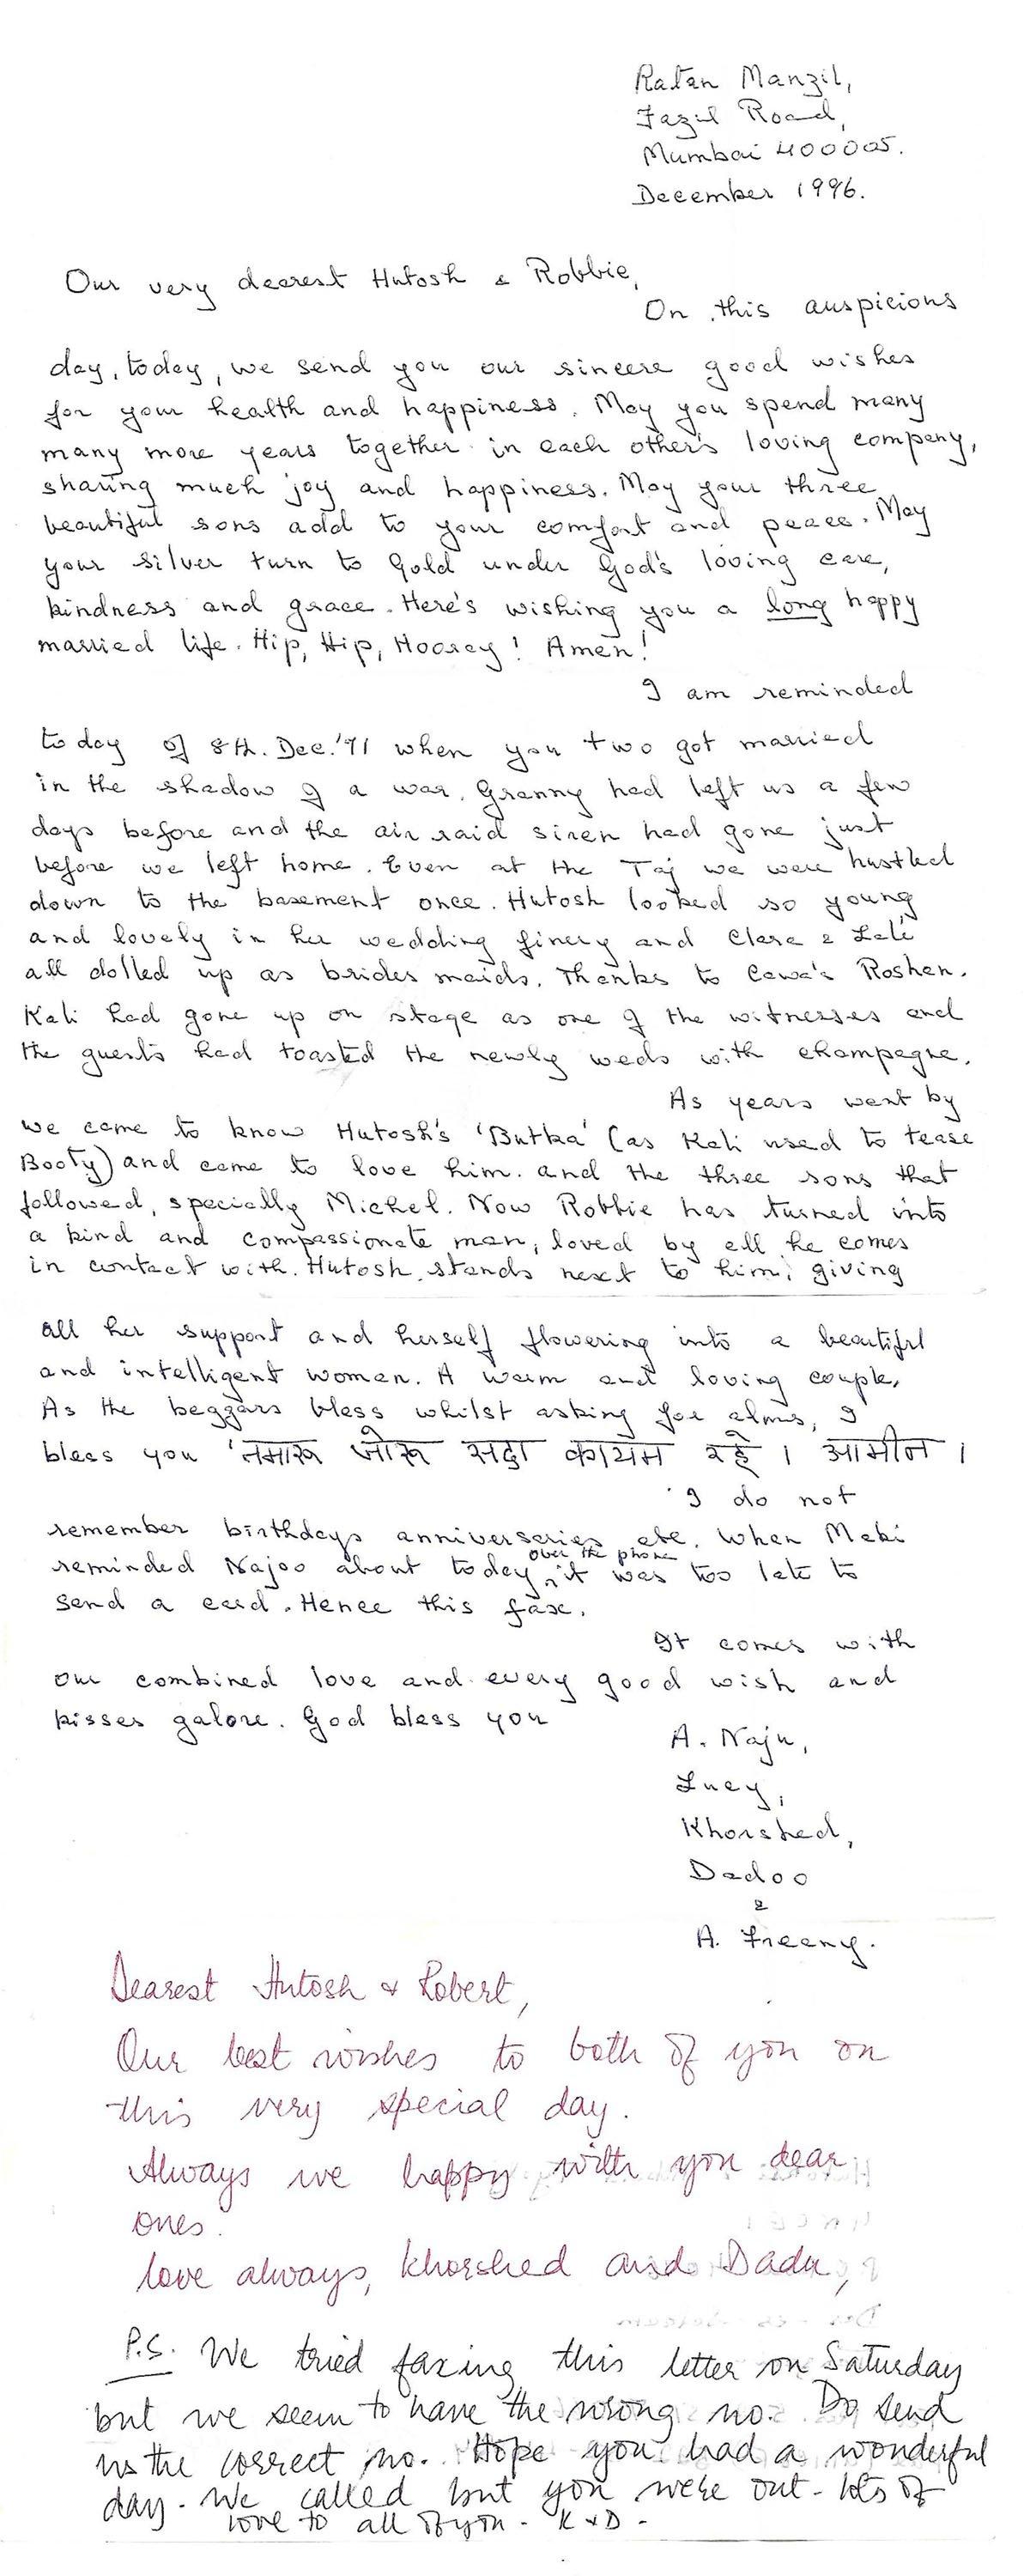 Ratan Manzil,
Fazul Road,
Mumbai 400005.
December 1996.
Our very dearest Hutosh & Robbie,
On this auspicious
day, today, we send you our sincere good wishes
for your health and happiness. May you spend many
many more years together in each other's loving company,
sharing much joy and happiness. May your three
beautiful sons add to your comfort and peace. May
your silver turn to Gold under God's loving care,
kindness and grace. Here's wishing you a long happy
married life. Hip, Hip, Hooray! Amen!
I am reminded
today of 8th. Dec.'71 when you two got married
in the shadow of a war. Granny had left us a few
days before and the air raid siren had gone just
before we left home. Even at the Taj we were hustled
down to the basement once. Hutosh looked so young
and lovely in her wedding finery and Clara & Lali
all dolled up as brides maids. Thanks to Cawa's Roshan.
Kali had gone up on stage as one of the witnesses and
the guests had toasted the newly weds with champagne.
As years went by
we came to know Hutosh's 'Butka' (as Kali used to tease
Booty) and came to love him. and the three sons that
followed, specially Michel. Now Robbie has turned into
a kind and compassionate man, loved by all he comes
in contact with. Hutosh stands next to him, giving
all her support and herself flowering into a beautiful
and intelligent woman. A warm and loving couple.
As the beggars bless whilst asking for alms, I
bless you 'तमारू जोरू सदा कायम रहे । आमीन ।
I do not
remember birthdays anniversaries etc. When Meki
reminded Najoo about today over the phone, it was too late to
send a card. Hence this fax.
It comes with
our combined love and every good wish and
kisses galore. God bless you
A. Naju,
Lucy,
Khorshed,
Dadoo
&
A. Freeny.
Dearest Hutosh & Robert,
Our best wishes to both of you on
this very special day.
Always we happy with you dear
ones.
love always, Khorshed and Dadu,
P.S. We tried faxing this letter on Saturday
but we seem to have the wrong no. Do send
us the correct no. Hope you had a wonderful
day. We called but you were out - lots of
love to all of you - K & D -